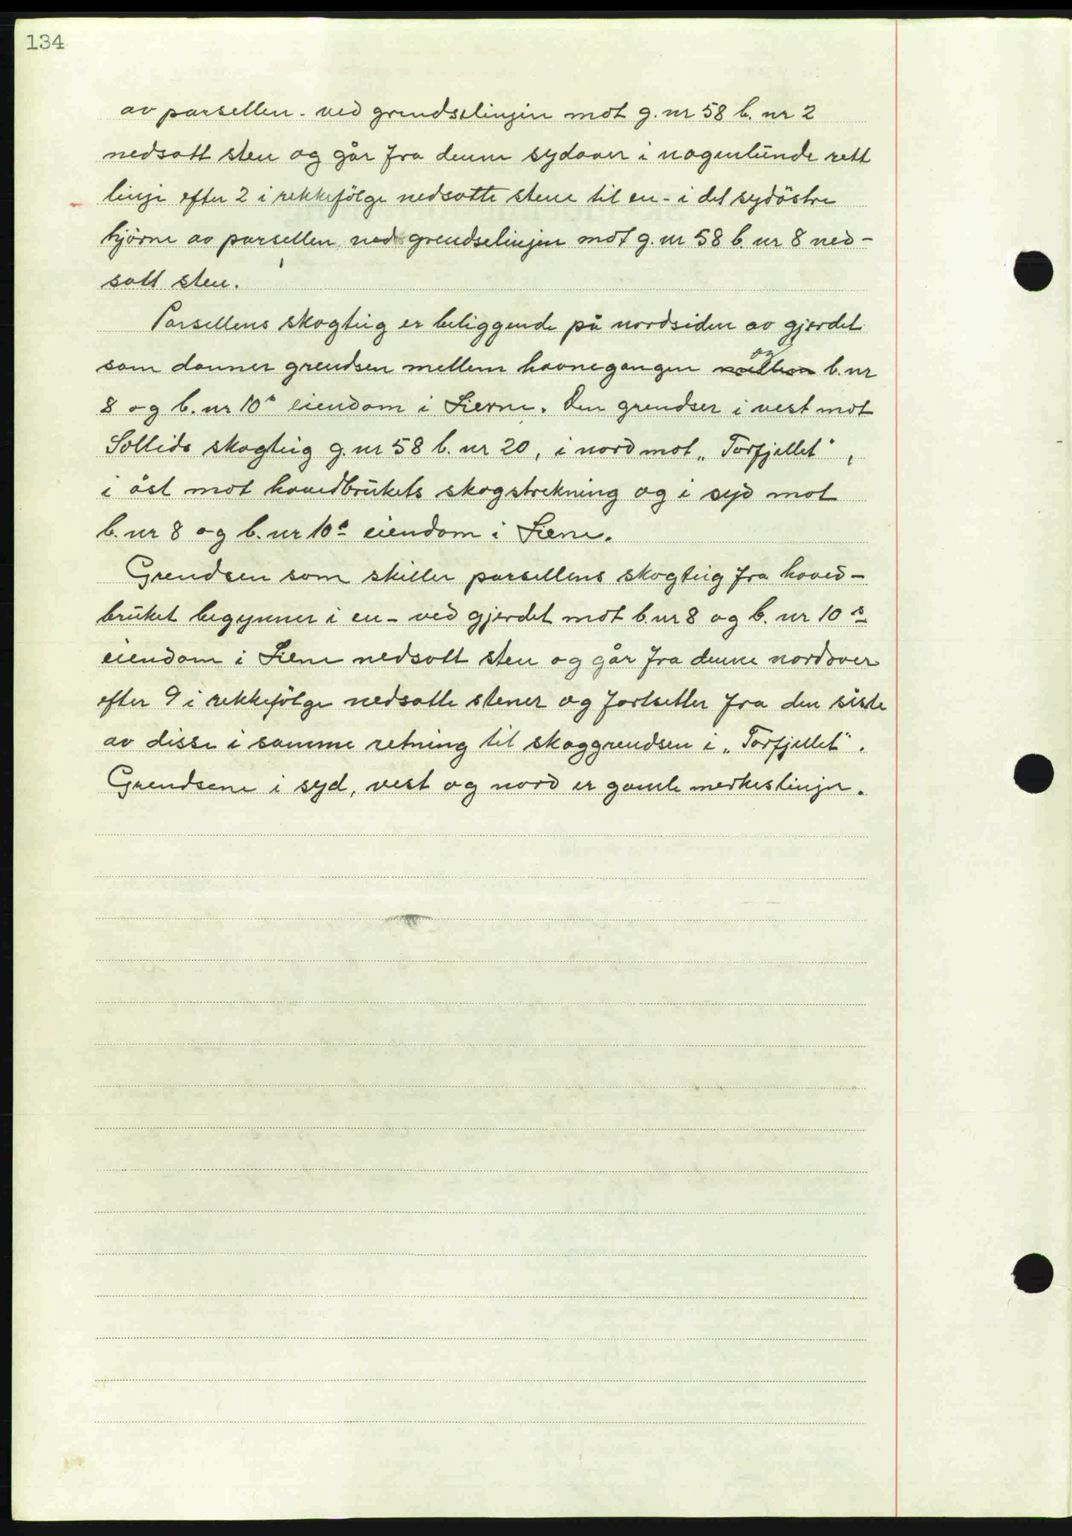 134
av parsellen - ved grendselinjen mot g. nr 58 b. nr 2
nedsatt sten og går fra denne sydover i nogenlunde rett
linje efter 2 i rekkefölge nedsatte stene til en - i det sydöstre
hjörne av parsellen ved grendselinjen mot g. nr 58 b. nr 8 ned-
satt sten.
Parsellens skogteig er beliggende på nordsiden av gjerdet
som danner grendsen mellem havnegangen og b. nr
8 og b. nr 10s eiendom i Lierne. Den grendser i vest mot
Sollids skogteig g. nr 58 b. nr 20, i nord mot „Torfjellet",
i öst mot hovedbrukets skogstrekning og i syd mot
b. nr 8 og b. nr 10s eiendom i Liene.
Grendsen som skiller parsellens skogteig fra hoved-
bruket begynner i en - ved gjerdet mot b. nr 8 og b. nr 10s
eiendom i Liene nedsatt sten og går fra denne nordover
efter 9 i rekkefölge nedsatte stener og fortsetter fra den siste
av disse i samme retning til skoggrendsen i „Torfjellet".
Grendsene i syd, vest og nord er gamle merkeslinjer.